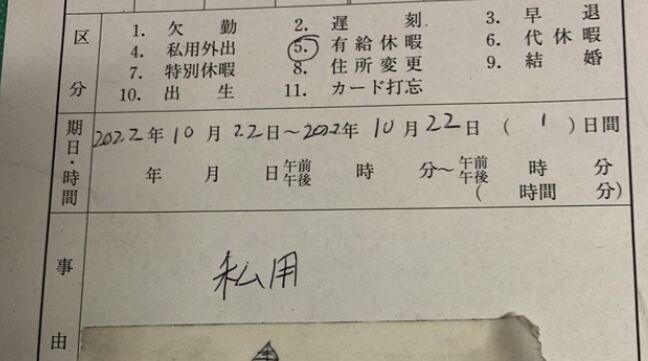 区分
1. 欠勤 2. 遅刻 3. 早退
4. 私用外出 5. 有給休暇 6. 代休暇
7. 特別休暇 8. 住所変更 9. 結婚
10. 出生 11. カード打忘
期日・時間
2022年10月22日〜2022年10月22日(1)日間
年 月 日 午前 午後 時 分〜 午前 午後 時 分
(時間 分)
事由
私用